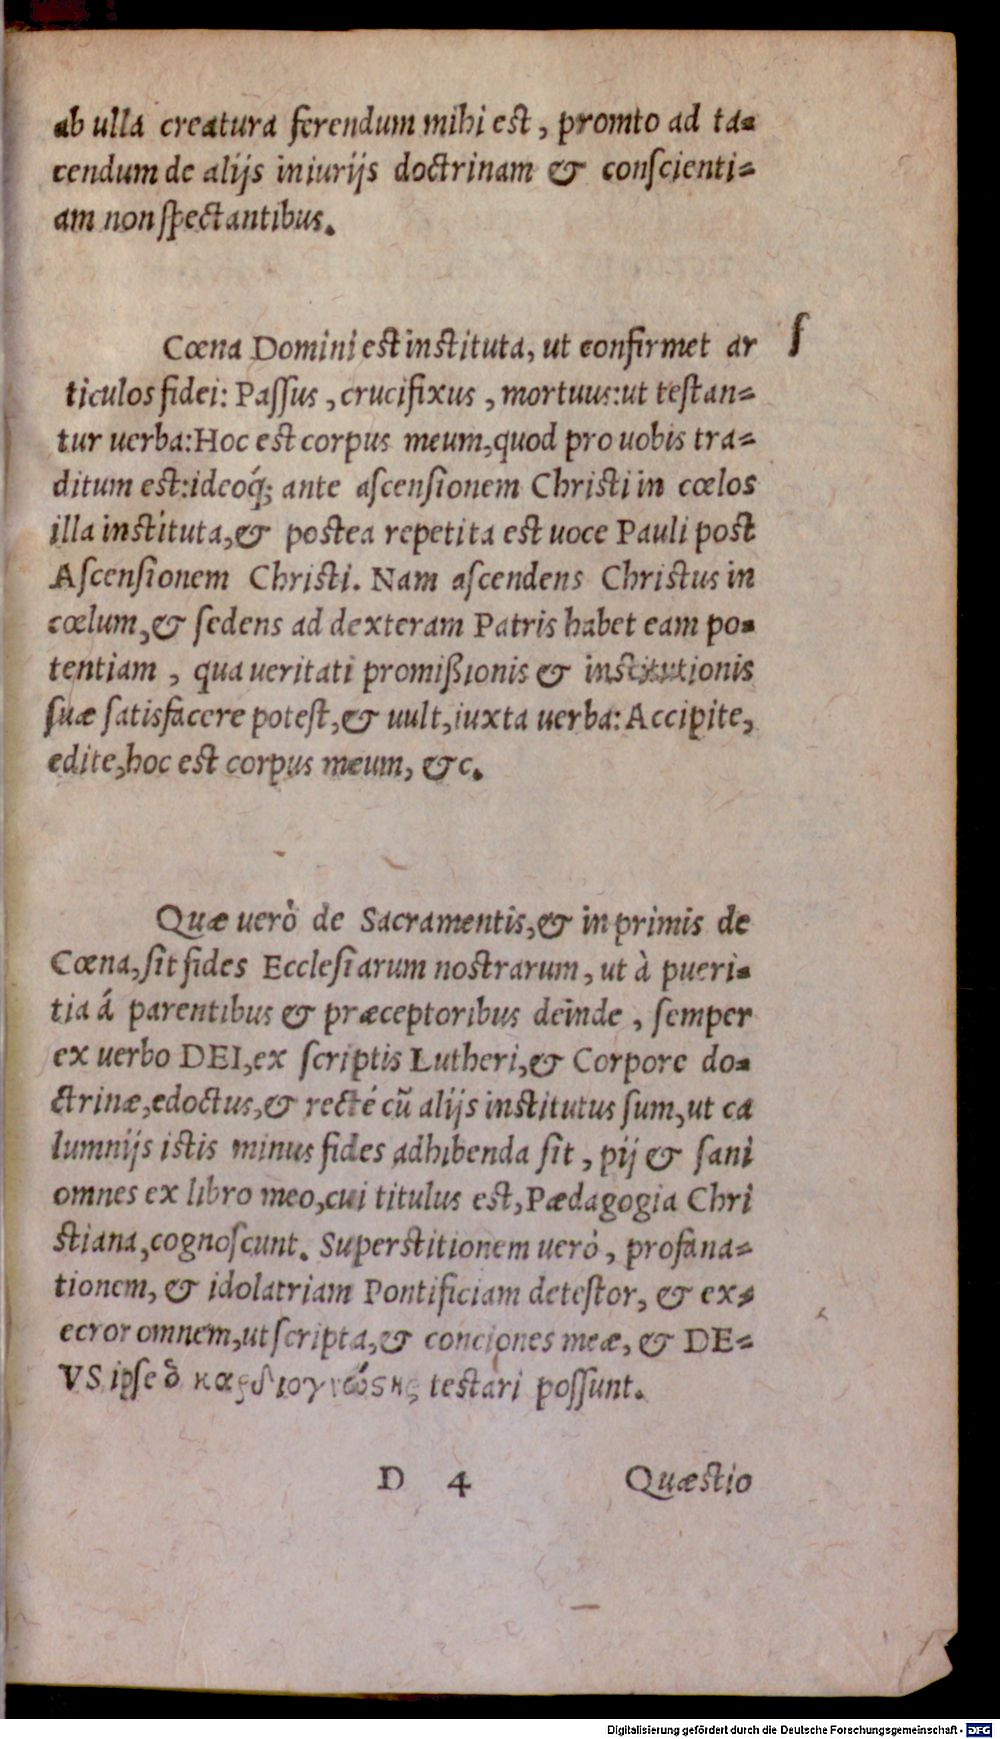 ab ulla creatura ferendum mihi est, promto ad ta=
cendum de alijs iniurijs doctrinam & conscienti=
am non spectantibus.
Cœna Domini est instituta, ut confirmet ar
ticulos fidei: Passus, crucifixus, mortuus: ut testan=
tur uerba: Hoc est corpus meum, quod pro uobis tra=
ditum est: ideoq́; ante ascensionem Christi in cœlos
illa instituta, & postea repetita est uoce Pauli post
Ascensionem Christi. Nam ascendens Christus in
cœlum, & sedens ad dexteram Patris habet eam po=
tentiam, qua ueritati promißionis & institutionis
suæ satisfacere potest, & uult, iuxta uerba: Accipite,
edite, hoc est corpus meum, &c.
Quæ uerò de Sacramentis, & in primis de
Cœna, sit fides Ecclesiarum nostrarum, ut à pueri=
tia á parentibus & præceptoribus deinde, semper
ex uerbo DEI, ex scriptis Lutheri, & Corpore do=
ctrinæ, edoctus, & recté cū alijs institutus sum, ut ca
lumnijs istis minus fides adhibenda sit, pij & sani
omnes ex libro meo, cui titulus est, Pædagogia Chri
stiana, cognoscunt. Superstitionem uerò, profana=
tionem, & idolatriam Pontificiam detestor, & ex=
ecror omnem, ut scripta, & conciones meæ, & DE=
VS ipse ὁ καρδιογνώσης testari possunt.
D 4 Quæstio
Digitalisierung gefördert durch die Deutsche Forschungsgemeinschaft - DFG